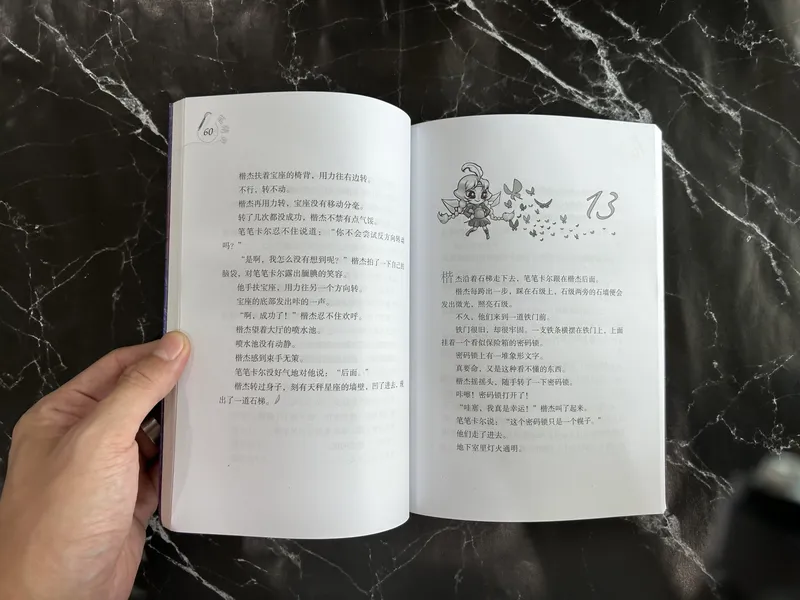 60
楷杰扶着宝座的椅背，用力往右边转。
不行，转不动。
楷杰再用力转，宝座没有移动分毫。
转了几次都没成功，楷杰不禁有点气馁。
笔笔卡尔忍不住说道：“你不会尝试反方向转动
吗？”
“是啊，我怎么没有想到呢？”楷杰拍了一下自己的
脑袋，对笔笔卡尔露出腼腆的笑容。
他手扶宝座，用力往另一个方向转。
宝座的底部发出咔的一声。
“啊，成功了！”楷杰忍不住欢呼。
楷杰望着大厅的喷水池。
喷水池没有动静。
楷杰感到束手无策。
笔笔卡尔没好气地对他说：“后面。”
楷杰转过身子，刻有天秤星座的墙壁，凹了进去，
出了一道石梯。
13
楷杰沿着石梯走下去，笔笔卡尔跟在楷杰后面。
楷杰每跨出一步，踩在石级上，石级两旁的石墙便会
发出微光，照亮石级。
不久，他们来到一道铁门前。
铁门很旧，却很牢固。一支铁条横摆在铁门上，上面
挂着一个看似保险箱的密码锁。
密码锁上有一堆象形文字。
真要命，又是这种看不懂的东西。
楷杰摇摇头，随手转了一下密码锁。
咔嚓！密码锁打开了！
“哇塞，我真是幸运！”楷杰叫了起来。
笔笔卡尔说：“这个密码锁只是一个幌子。”
他们走了进去。
地下室里灯火通明。